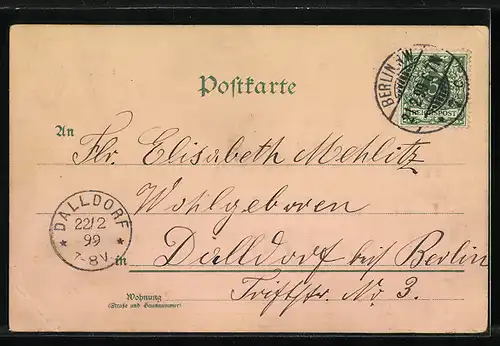 Postkarte
BERLIN N.W.
21 2 99
REICHSPOST
An
Frl. Elisabeth Mehlitz
Wohlgeboren
DALLDORF
22/2
99
7-8V.
in Dalldorf bei Berlin
Wohnung
(Straße und Hausnummer)
Triftstr. No 3.